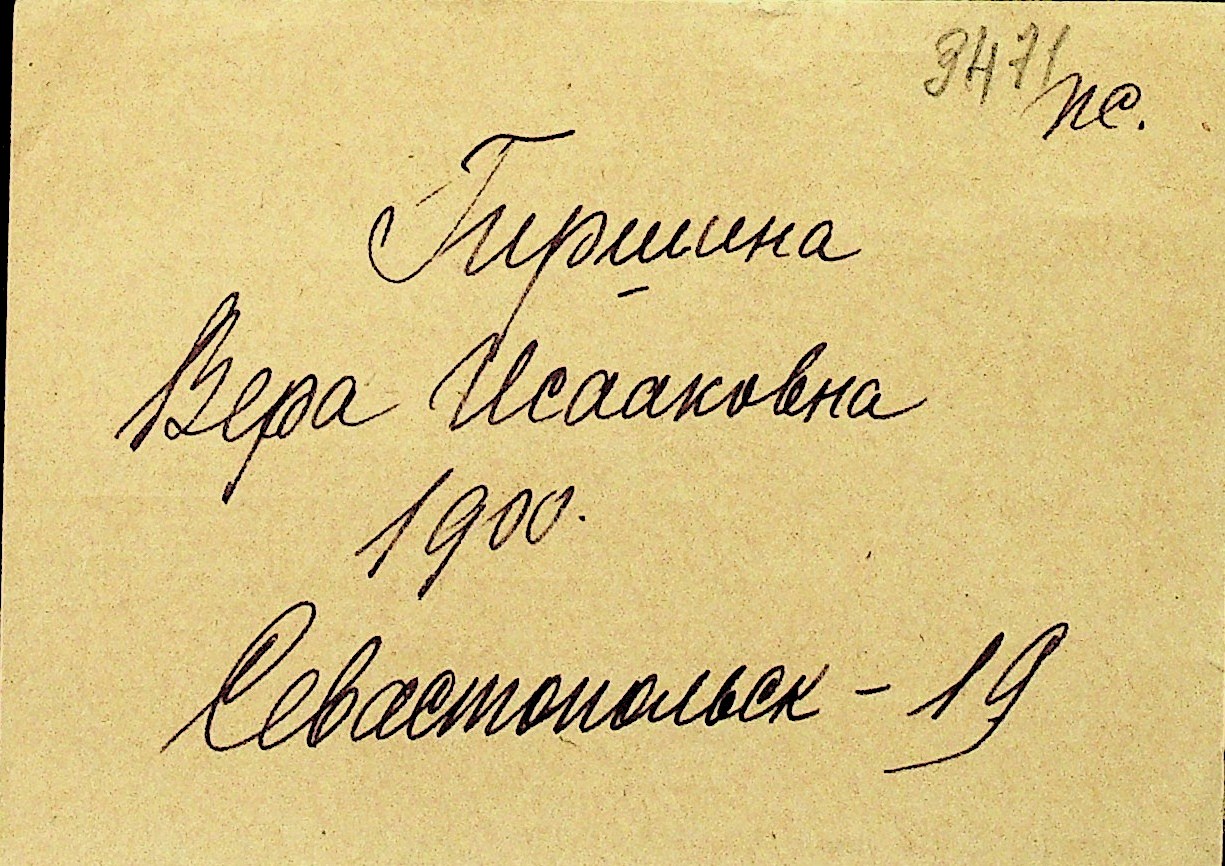 9471
пс.
Гиршина
Вера Исааковна
1900.
Севастопольск - 19